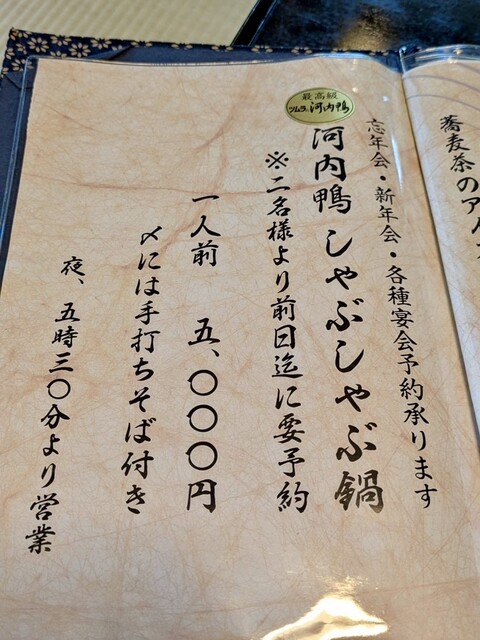 蕎麦茶のア
忘年会・新年会・各種宴会予約承ります
最高級
ツムラの河内鴨
河内鴨しゃぶしゃぶ鍋
※二名様より前日迄に要予約
一人前 五、〇〇〇円
〆には手打ちそば付き
夜、五時三〇分より営業